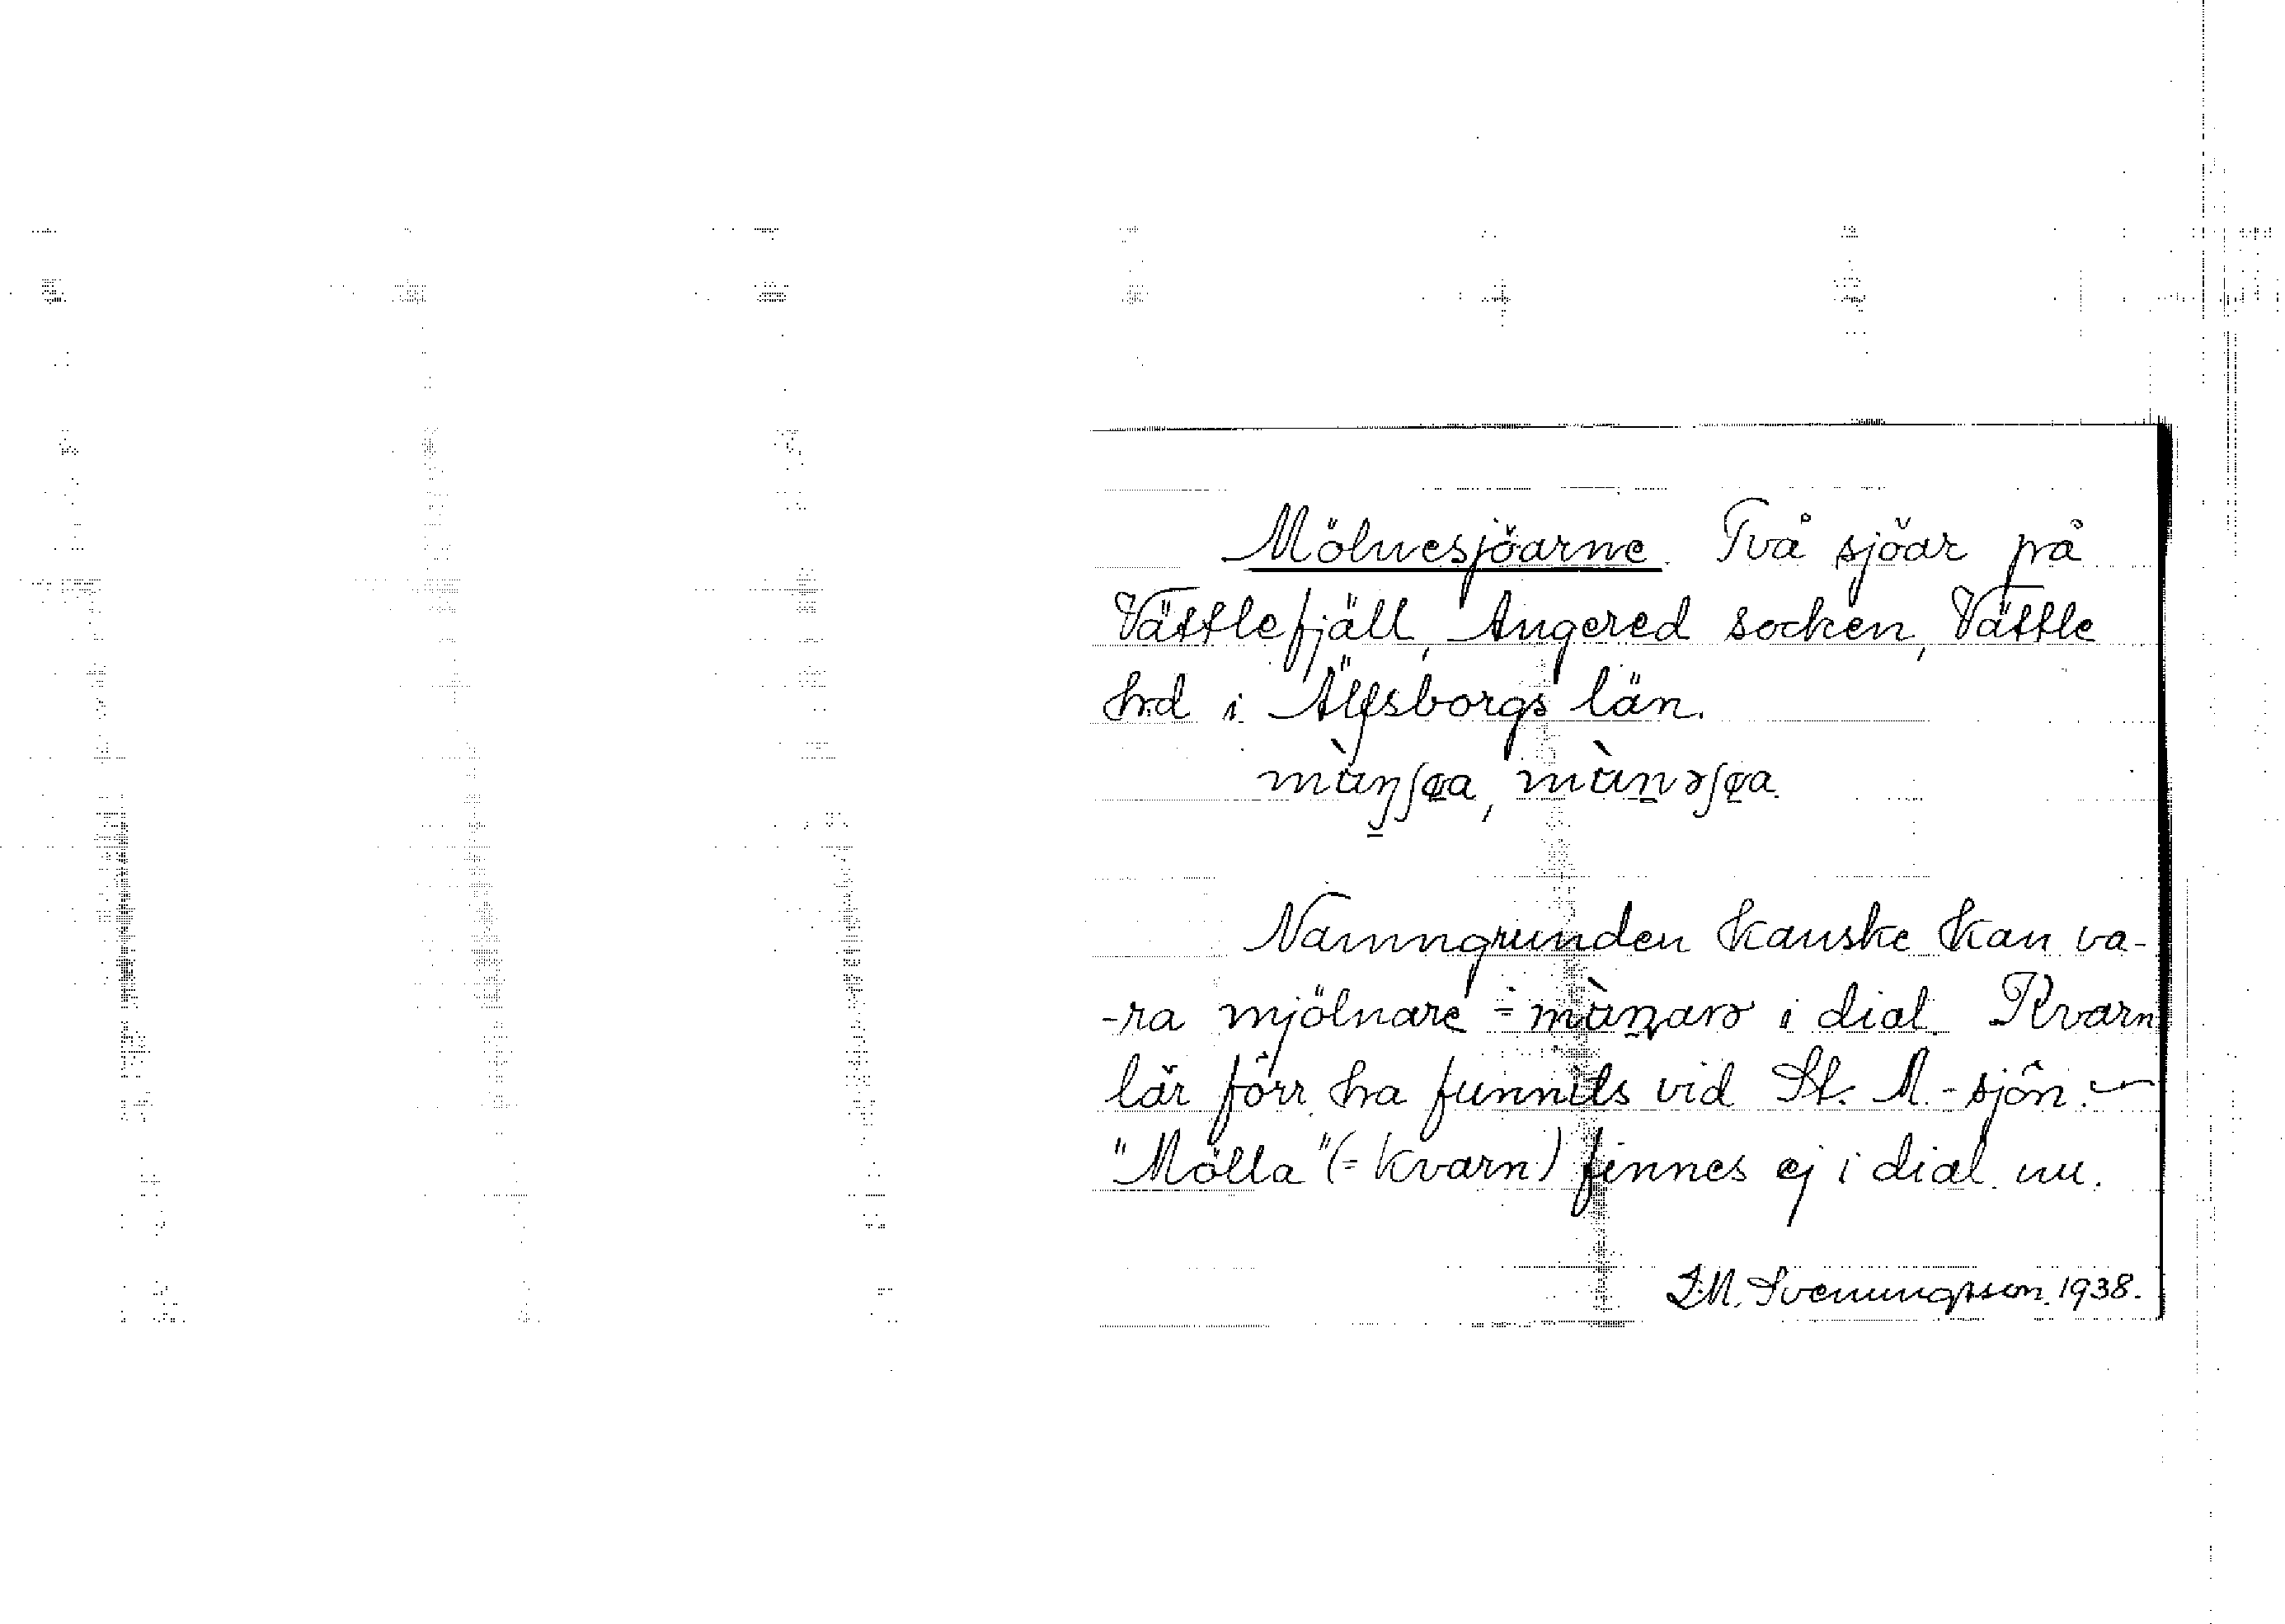 Mölnesjöarne. Två sjöar på
Vättlefjäll, Angered socken, Vättle
h:d i Älfsborgs län.
Namngrunden kanske kan va-
-ra mjölnare = i dial. Kvarn
lär förr ha funnits vid St. M.-sjön. –
"Mölla" (= kvarn) finnes ej i dial. nu.
I.M. Svenungsson. 1938.